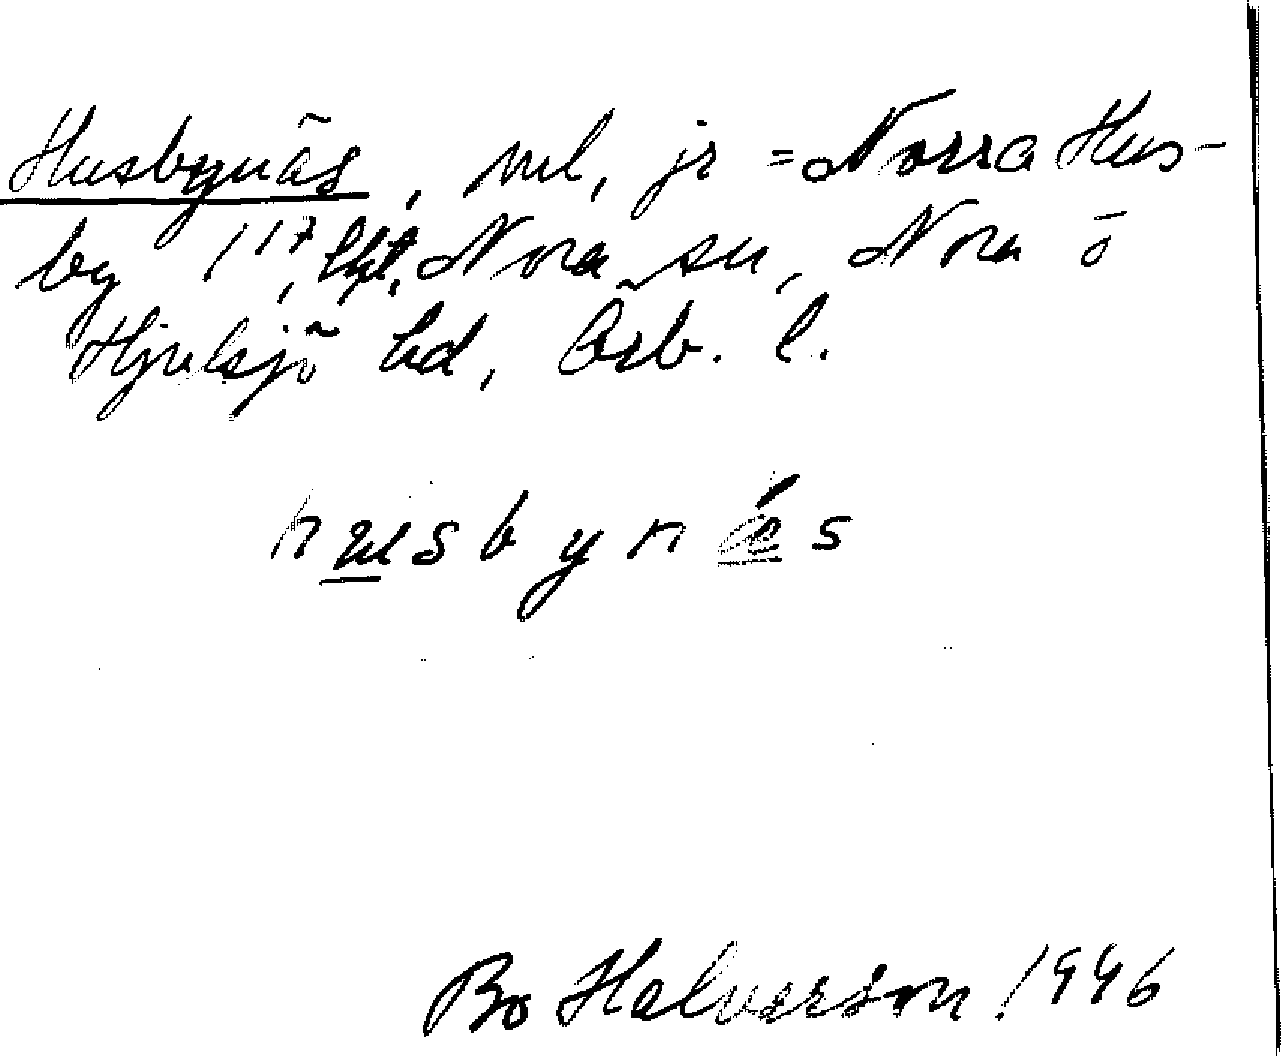 Husbynäs, nul, jr = Norra Hus-
by 1¹⁷, lht, Nora sn, Nora o
Hjulsjö hd, Örb. l.
husbynäs
Bo Halvarson 1946